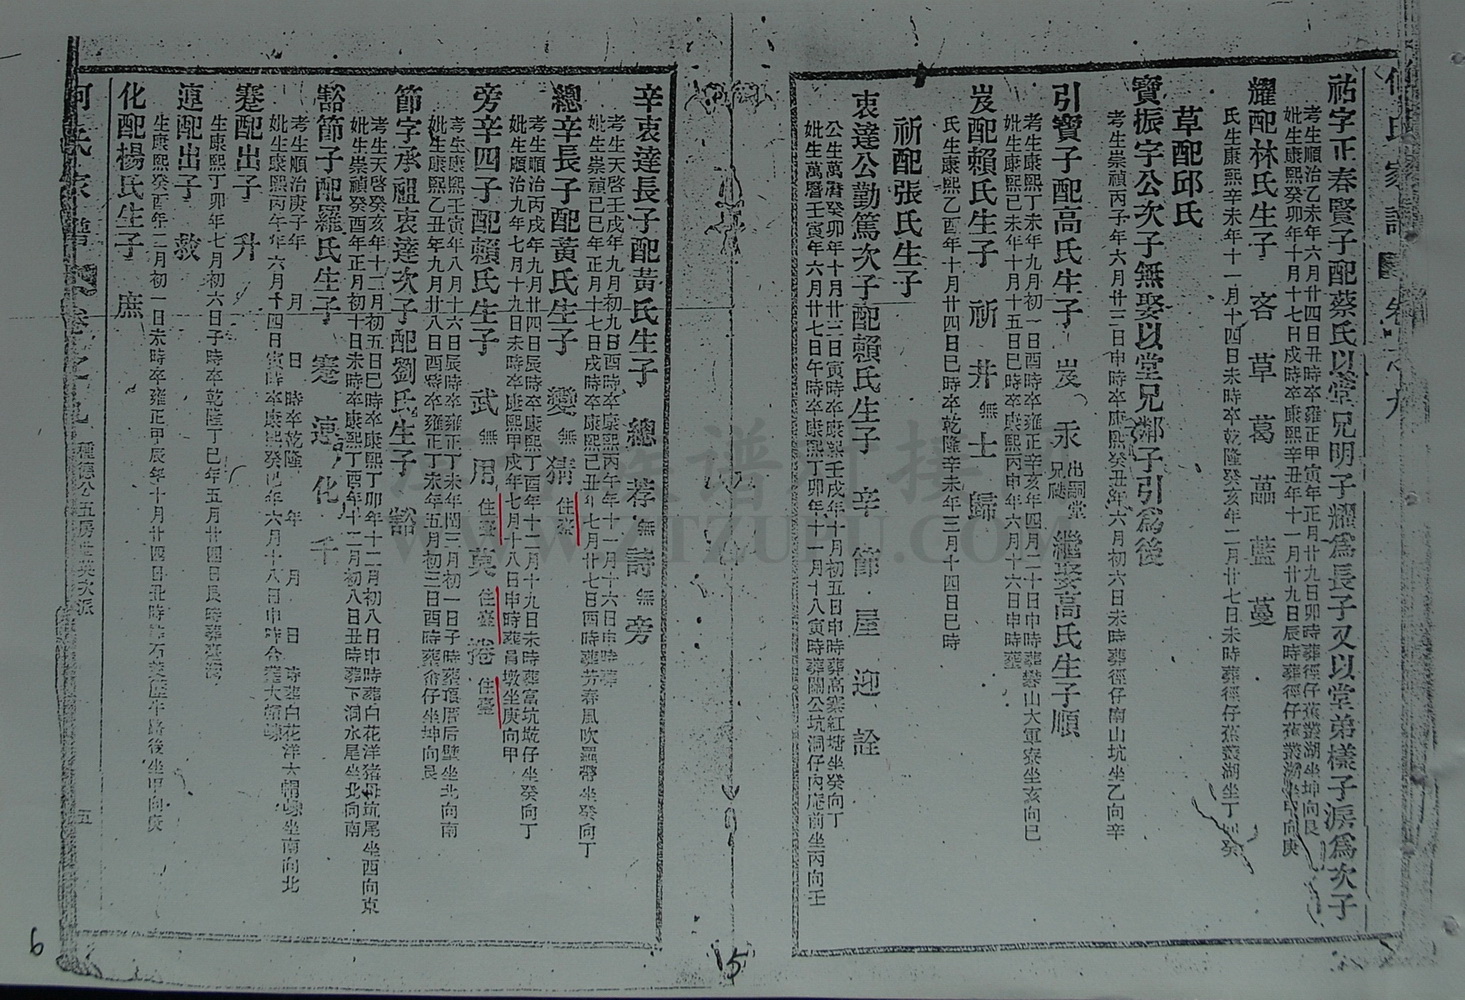 何氏家譜 卷之九
祐字正春賢子配蔡氏以堂兄明子耀為長子又以堂弟樣子淚為次子
考生順治乙未年六月廿四日丑時卒雍正甲寅年正月廿九日卯時葬徑仔蕉叢湖坐坤向艮
妣生康熙癸卯年十月十七日戌時卒康熙辛丑年十一月廿九日辰時葬徑仔蕉叢湖坐 向庚
耀配林氏生子 吝 草 葛 藟 藍 蔓
氏生康熙辛未年十一月十四日未時卒乾隆癸亥年二月廿七日未時葬徑仔蕉叢湖坐丁向癸
草配邱氏
寶振字公次子無娶以堂兄鄰子引為後
考生崇禎丙子年 月廿三日申時卒康熙癸丑年六月初六日未時葬徑仔南山坑坐乙向辛
引寶子配高氏生子 岌 汞 出嗣堂兄 繼娶高氏生子順
考生康熙丁未年九月初一日酉時卒雍正辛亥年四月二十日申時葬 山大軍寮坐亥向巳
妣生康熙己未年十月十五日巳時卒康熙丙申年六月十六日申時葬
岌配賴氏生子 祈 井 無 士 歸
氏生康熙乙酉年十月廿四日巳時卒乾隆辛未年三月十四日巳時
祈配張氏生子
衷達公勤篤次子配賴氏生子 辛 節 屋 迎 詮
公生萬曆癸卯年十月廿二日寅時卒康熙壬戌年十月初五日申時葬高寨紅塘坐癸向丁
妣生萬曆壬寅年六月廿七日午時卒康熙丁卯年十一月十八寅時葬關公坑洞仔內庵前坐丙向壬
辛衷達長子配黃氏生子 總 荐 無 詩 無 旁
考生天啓壬戌年九月初九日酉時卒康熙丙午年十一月十六日申時葬
妣生崇禎己巳年正月十七日戌時卒康熙己丑年七月廿七日酉時葬芳春風吹羅帶坐癸向丁
總辛長子配黃氏生子 變 無 猜 住臺
考生順治丙戌年九月廿四日辰時卒康熙丁酉年十二月十九日未時葬富坑墘仔坐癸向丁
妣生順治九年七月十九日未時卒康熙甲戌年七月十八日申時葬昌墩坐庚向甲
旁辛四子配賴氏生子 武 無 用 住臺 莫 住臺 捲 住臺
考生康熙壬寅年八月十六日辰時卒雍正丁未年閏三月初一日子時葬 厝后壁坐北向南
妣生康熙乙丑年九月廿八日酉時卒雍正丁未年五月初三日酉時葬 仔坐坤向艮
節字承祖衷達次子配劉氏生子 豁
考生天啓癸亥年十二月初五日巳時卒康熙丁卯年十二月初八日申時葬白花洋猪母坑尾坐西向東
妣生崇禎癸酉年正月初十日未時卒康熙丁酉年十二月初八日丑時葬下洞水尾坐北向南
豁節子配羅氏生子 蹇 蓮 化 千
考生順治庚子年 月 日 時卒乾隆 年 月 日 時葬白花洋大帽崠坐南向北
妣生康熙丙午年六月十四日寅時卒康熙癸巳年六月十八日申時合葬大帽崠
蹇配出子 升
生康熙丁卯年七月初六日子時卒乾隆丁巳年五月廿四日辰時葬臺灣
蓮配出子 救
生康熙癸酉年二月初一日未時卒雍正甲辰年十月廿四日丑時葬石 厝牛路後坐甲向庚
化配楊氏生子 庶
何氏家譜 卷之九 種德公五房生英次派 五
15
6